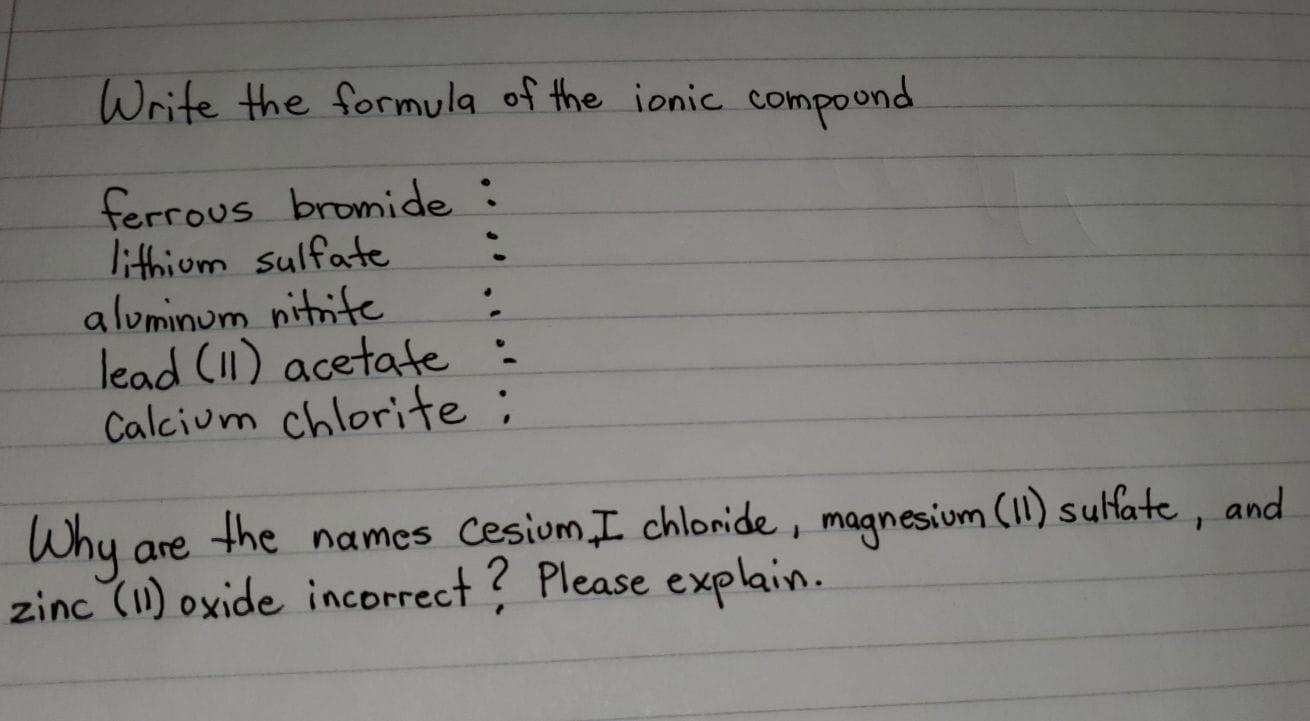 Write the formula of the ionic compound
ferrous bromide :
lithium sulfate :
aluminum nitrite :
lead (II) acetate :
Calcium chlorite :
Why are the names Cesium, I chloride, magnesium (II) sulfate, and
zinc (II) oxide incorrect? Please explain.